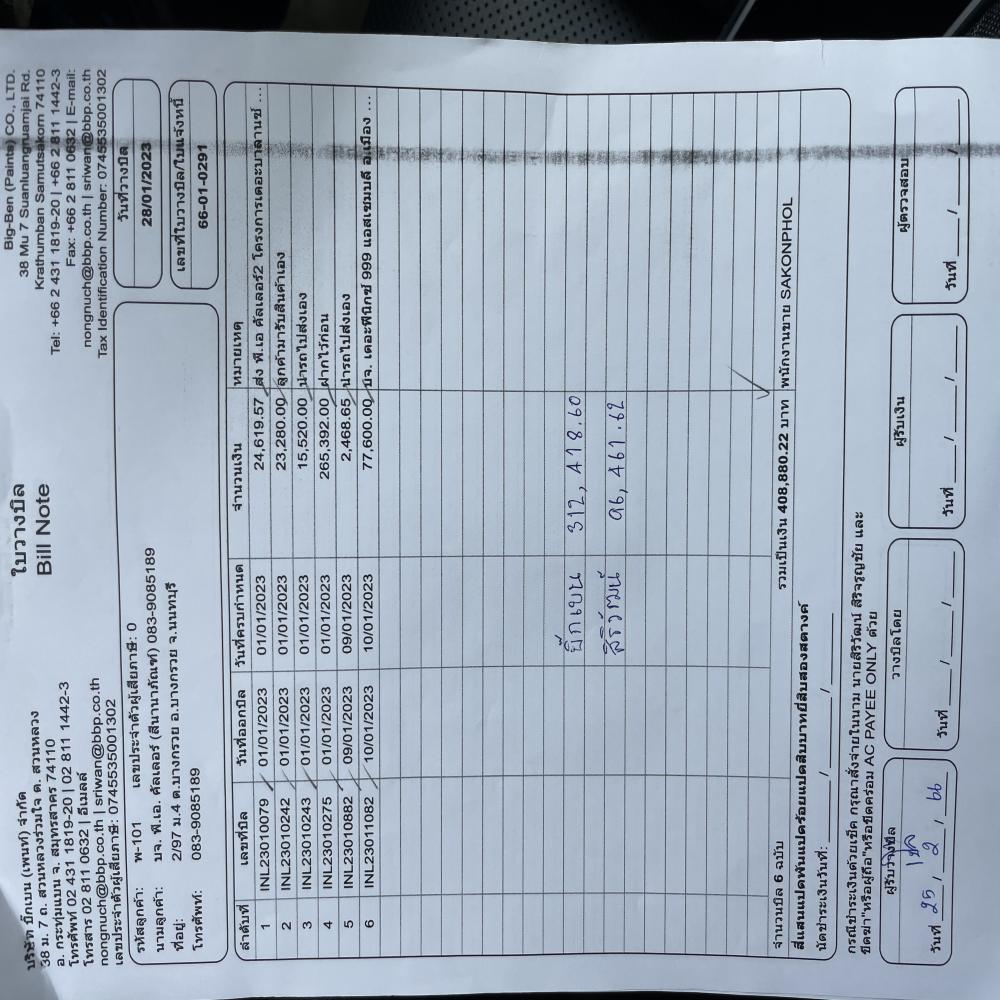 บริษัท บิ๊กเบน (เพนท์) จำกัด
38 ม. 7 ถ. สวนหลวงร่วมใจ ต. สวนหลวง
อ. กระทุ่มแบน จ. สมุทรสาคร 74110
โทรศัพท์ 02 431 1819-20 | 02 811 1442-3
โทรสาร 02 811 0632 | อีเมลล์
nongnuch@bbp.co.th | sriwan@bbp.co.th
เลขประจำตัวผู้เสียภาษี: 0745535001302
ใบวางบิล
Bill Note
Big-Ben (Paints) CO., LTD.
38 Mu 7 Suanluangruamjai Rd.
Krathumban Samutsakorn 74110
Tel: +66 2 431 1819-20 | +66 2 811 1442-3
Fax: +66 2 811 0632 | E-mail:
nongnuch@bbp.co.th | sriwan@bbp.co.th
Tax Identification Number: 0745535001302
รหัสลูกค้า: พ-101 เลขประจำตัวผู้เสียภาษี: 0
นามลูกค้า: บจ. พี.เอ. คัลเลอร์ (สีนานาภัณฑ์) 083-9085189
ที่อยู่: 2/97 ม.4 ต.บางกรวย อ.บางกรวย จ.นนทบุรี
โทรศัพท์: 083-9085189
วันที่วางบิล
28/01/2023
เลขที่ใบวางบิล/ใบแจ้งหนี้
66-01-0291
ลำดับที่ เลขที่บิล วันที่ออกบิล วันที่ครบกำหนด จำนวนเงิน หมายเหตุ
1 INL23010079 01/01/2023 01/01/2023 24,619.57 ส่ง พี.เอ คัลเลอร์2 โครงการเดอะบาลานซ์ ...
2 INL23010242 01/01/2023 01/01/2023 23,280.00 ลูกค้ามารับสินค้าเอง
3 INL23010243 01/01/2023 01/01/2023 15,520.00 นำรถไปส่งเอง
4 INL23010275 01/01/2023 01/01/2023 265,392.00 ฝากไว้ก่อน
5 INL23010882 09/01/2023 09/01/2023 2,468.65 นำรถไปส่งเอง
6 INL23011082 10/01/2023 10/01/2023 77,600.00 บจ. เดอะฟีนิกซ์ 999 แอสเซมบลี อ.เมือง ...
บิ๊กเบน 312,418.60
สิริวัฒน์ 96,461.62
จำนวนบิล 6 ฉบับ รวมเป็นเงิน 408,880.22 บาท พนักงานขาย SAKONPHOL
สี่แสนแปดพันแปดร้อยแปดสิบบาทยี่สิบสองสตางค์
นัดชำระเงินวันที่: / /
กรณีชำระเงินด้วยเช็ค กรุณาสั่งจ่ายในนาม นายสิริวัฒน์ สิริจรูญชัย และ
ขีดฆ่า"หรือผู้ถือ"หรือขีดคร่อม AC PAYEE ONLY ด้วย
ผู้รับวางบิล วางบิลโดย ผู้รับเงิน ผู้ตรวจสอบ
วันที่ 25 / 2 / 66 วันที่ / / วันที่ / / วันที่ / /